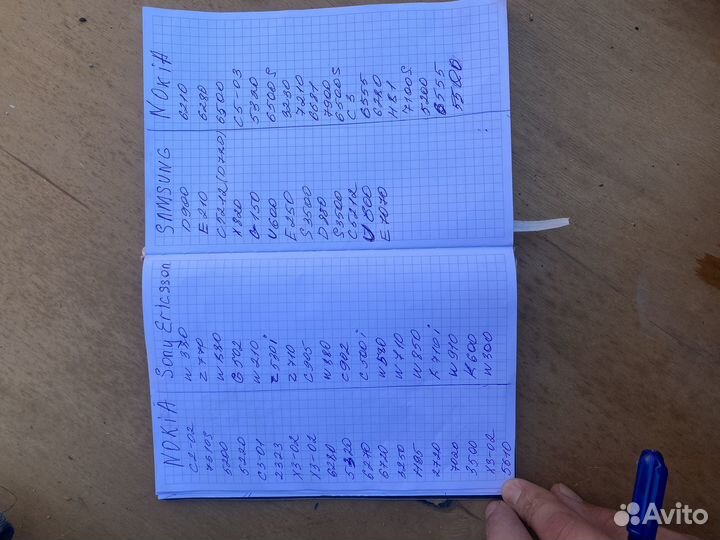 NOKIA
C2-02
7610S
5200
5220
C5-01
2323
X3-02
X3-02
6280
5320
6270
6720
3250
N85
2720
7020
3500
X3-02
5610
Sony Ericsson
W 380
Z 770
W 580
G 502
W 210
Z 530i
Z 710
C 905
W 880
C 902
C 500i
W 580
W 710
W 850
K 710i
W 910
K 600
W 300
SAMSUNG
D900
E 210
C5212 (D720)
X820
G 150
U600
E 250
S3500
D880
S3500
C5212
U800
E 7070
NOKIA
6210
6280
6500
C5-03
5320
6500S
3230
7210
6681
7900
6500S
C5
6555
6280
N81
7100S
5200
6555
5500
Avito